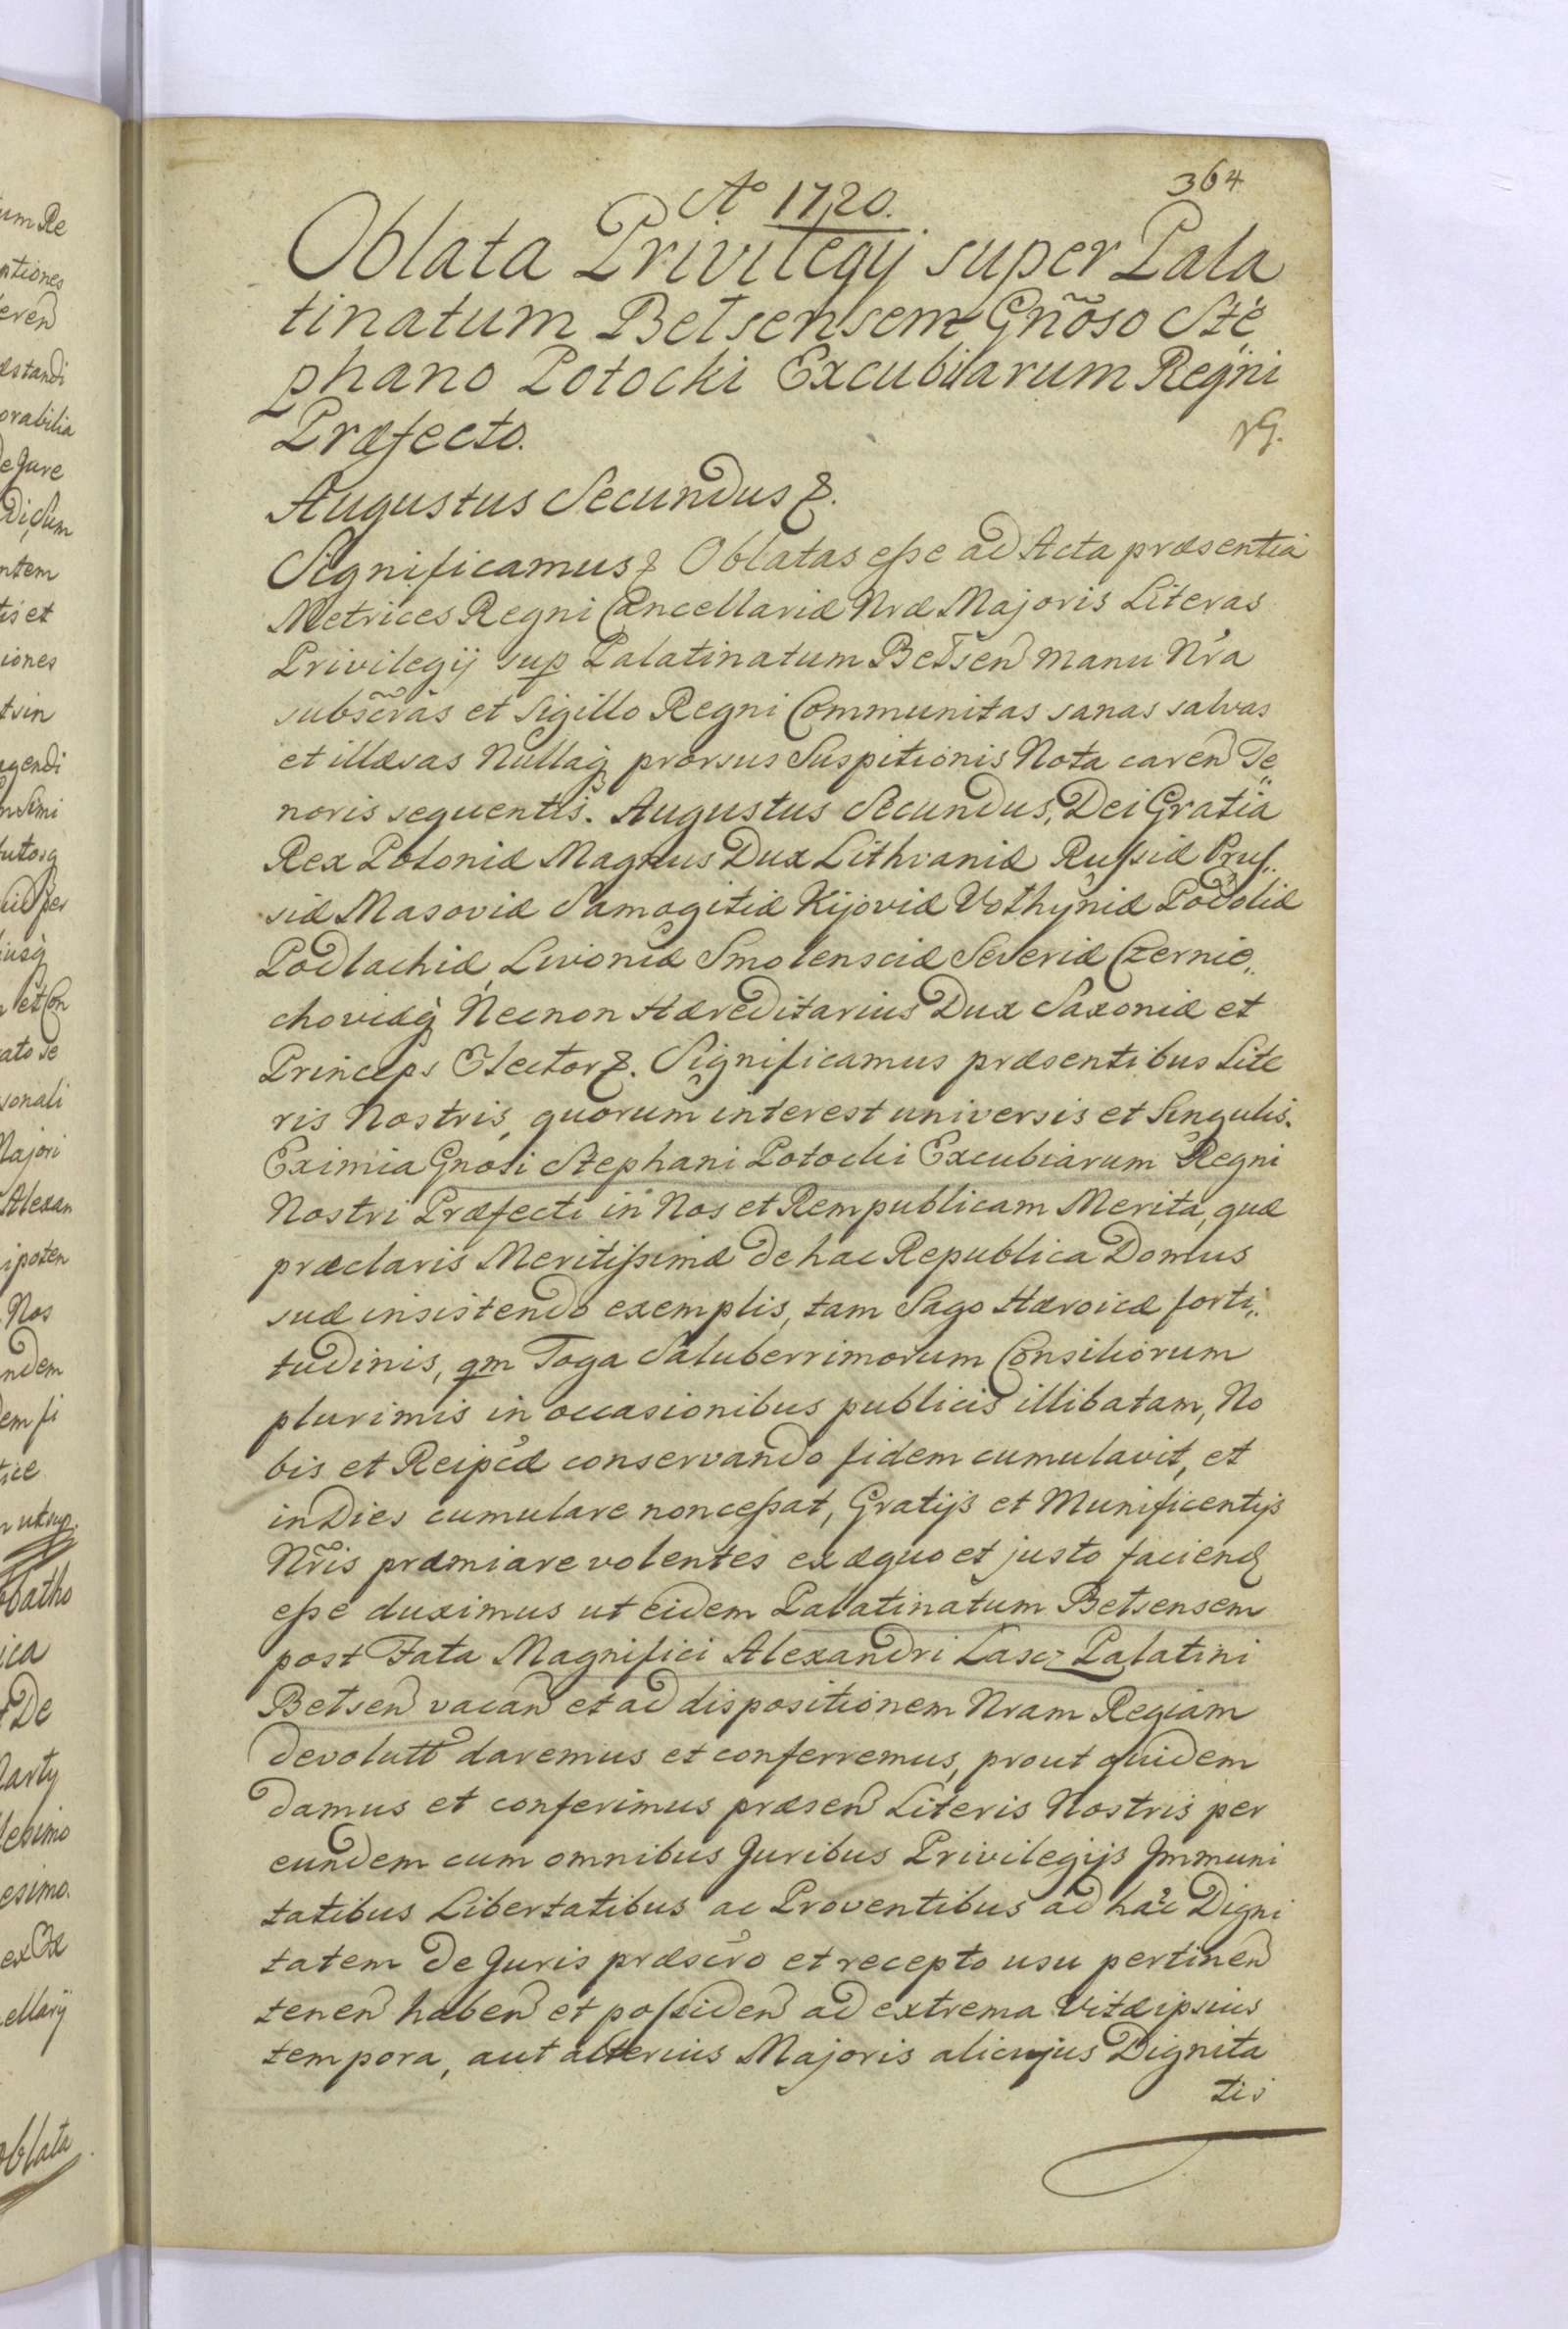 364
Aº 1720.
Oblata Privilegij super Pala
tinatum Belsensem Gnõso Ste
phano Potocki Excubiarum Regni
Præfecto.
Augustus Secundus &.
Significamus & Oblatas esse ad Acta præsentia
Metrices Regni Cancellariæ Nræ Majoris Literas
Privilegij sup Palatinatum Belsen manu Nra
subscras et Sigillo Regni Communitas sanas salvas
et illæsas Nullaq prorsus Suspitionis Nota caren Te„
noris sequentis. Augustus Secundus, Dei Gratia
Rex Poloniæ Magnus Dux Lithvaniæ Russiæ Prus„
siæ Masoviæ Samogitiæ Kijoviæ Volhyniæ Podoliæ
Podlachiæ, Livoniæ Smolensciæ Severiæ Czernie„
choviæq Necnon Hæreditarius Dux Saxoniæ et
Princeps Elector &. Significamus præsentibus Lite
ris Nostris, quorum interest universis et Singulis.
Eximia Gnosi Stephani Potocki Excubiarum Regni
Nostri Præfecti in Nos et Rempublicam Merita, quæ
præclaris Meritissimæ de hac Republica Domus
suæ insistendo exemplis, tam Sago Hæroicæ forti„
tudinis, qm Toga Saluberrimorum Consiliorum
plurimis in occasionibus publicis illibatam, No
bis et Reipcæ conservando fidem cumulavit, et
in Dies cumulare non cessat, Gratijs et Munificentijs
Nris præmiare volentes ex æquo et justo faciend
esse duximus ut eidem Palatinatum Belsensem
post Fata Magnifici Alexandri Lascz Palatini
Belsen vacan et ad dispositionem Nram Regiam
devolutt daremus et conferremus, prout quidem
damus et conferimus præsen Literis Nostris per
eundem cum omnibus Juribus Privilegijs Immuni
tatibus Libertatibus ac Proventibus ad hãc Digni
tatem de Juris præscro et recepto usu pertinen
tenen haben et possiden ad extrema Vitæ ipsius
tempora, aut alterius Majoris alicujus Dignita
tis